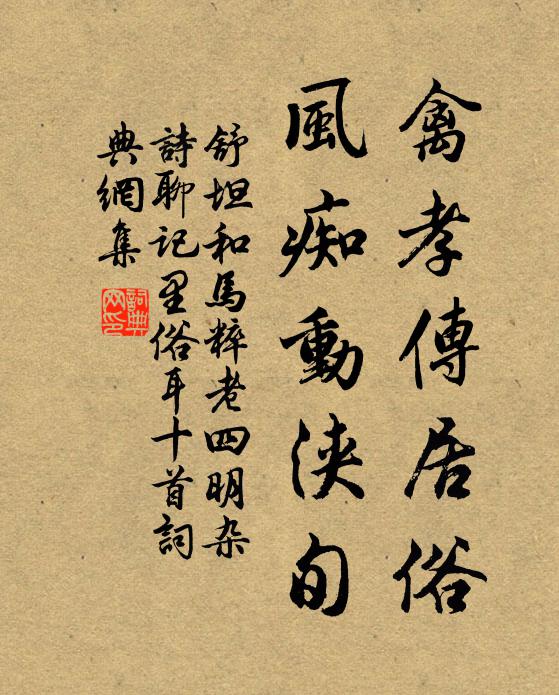 禽孝傳居俗
風痴動浹旬
舒坦和馬粹老四明杂
詩聊記里俗耳十首詞
典網集
詞典网印